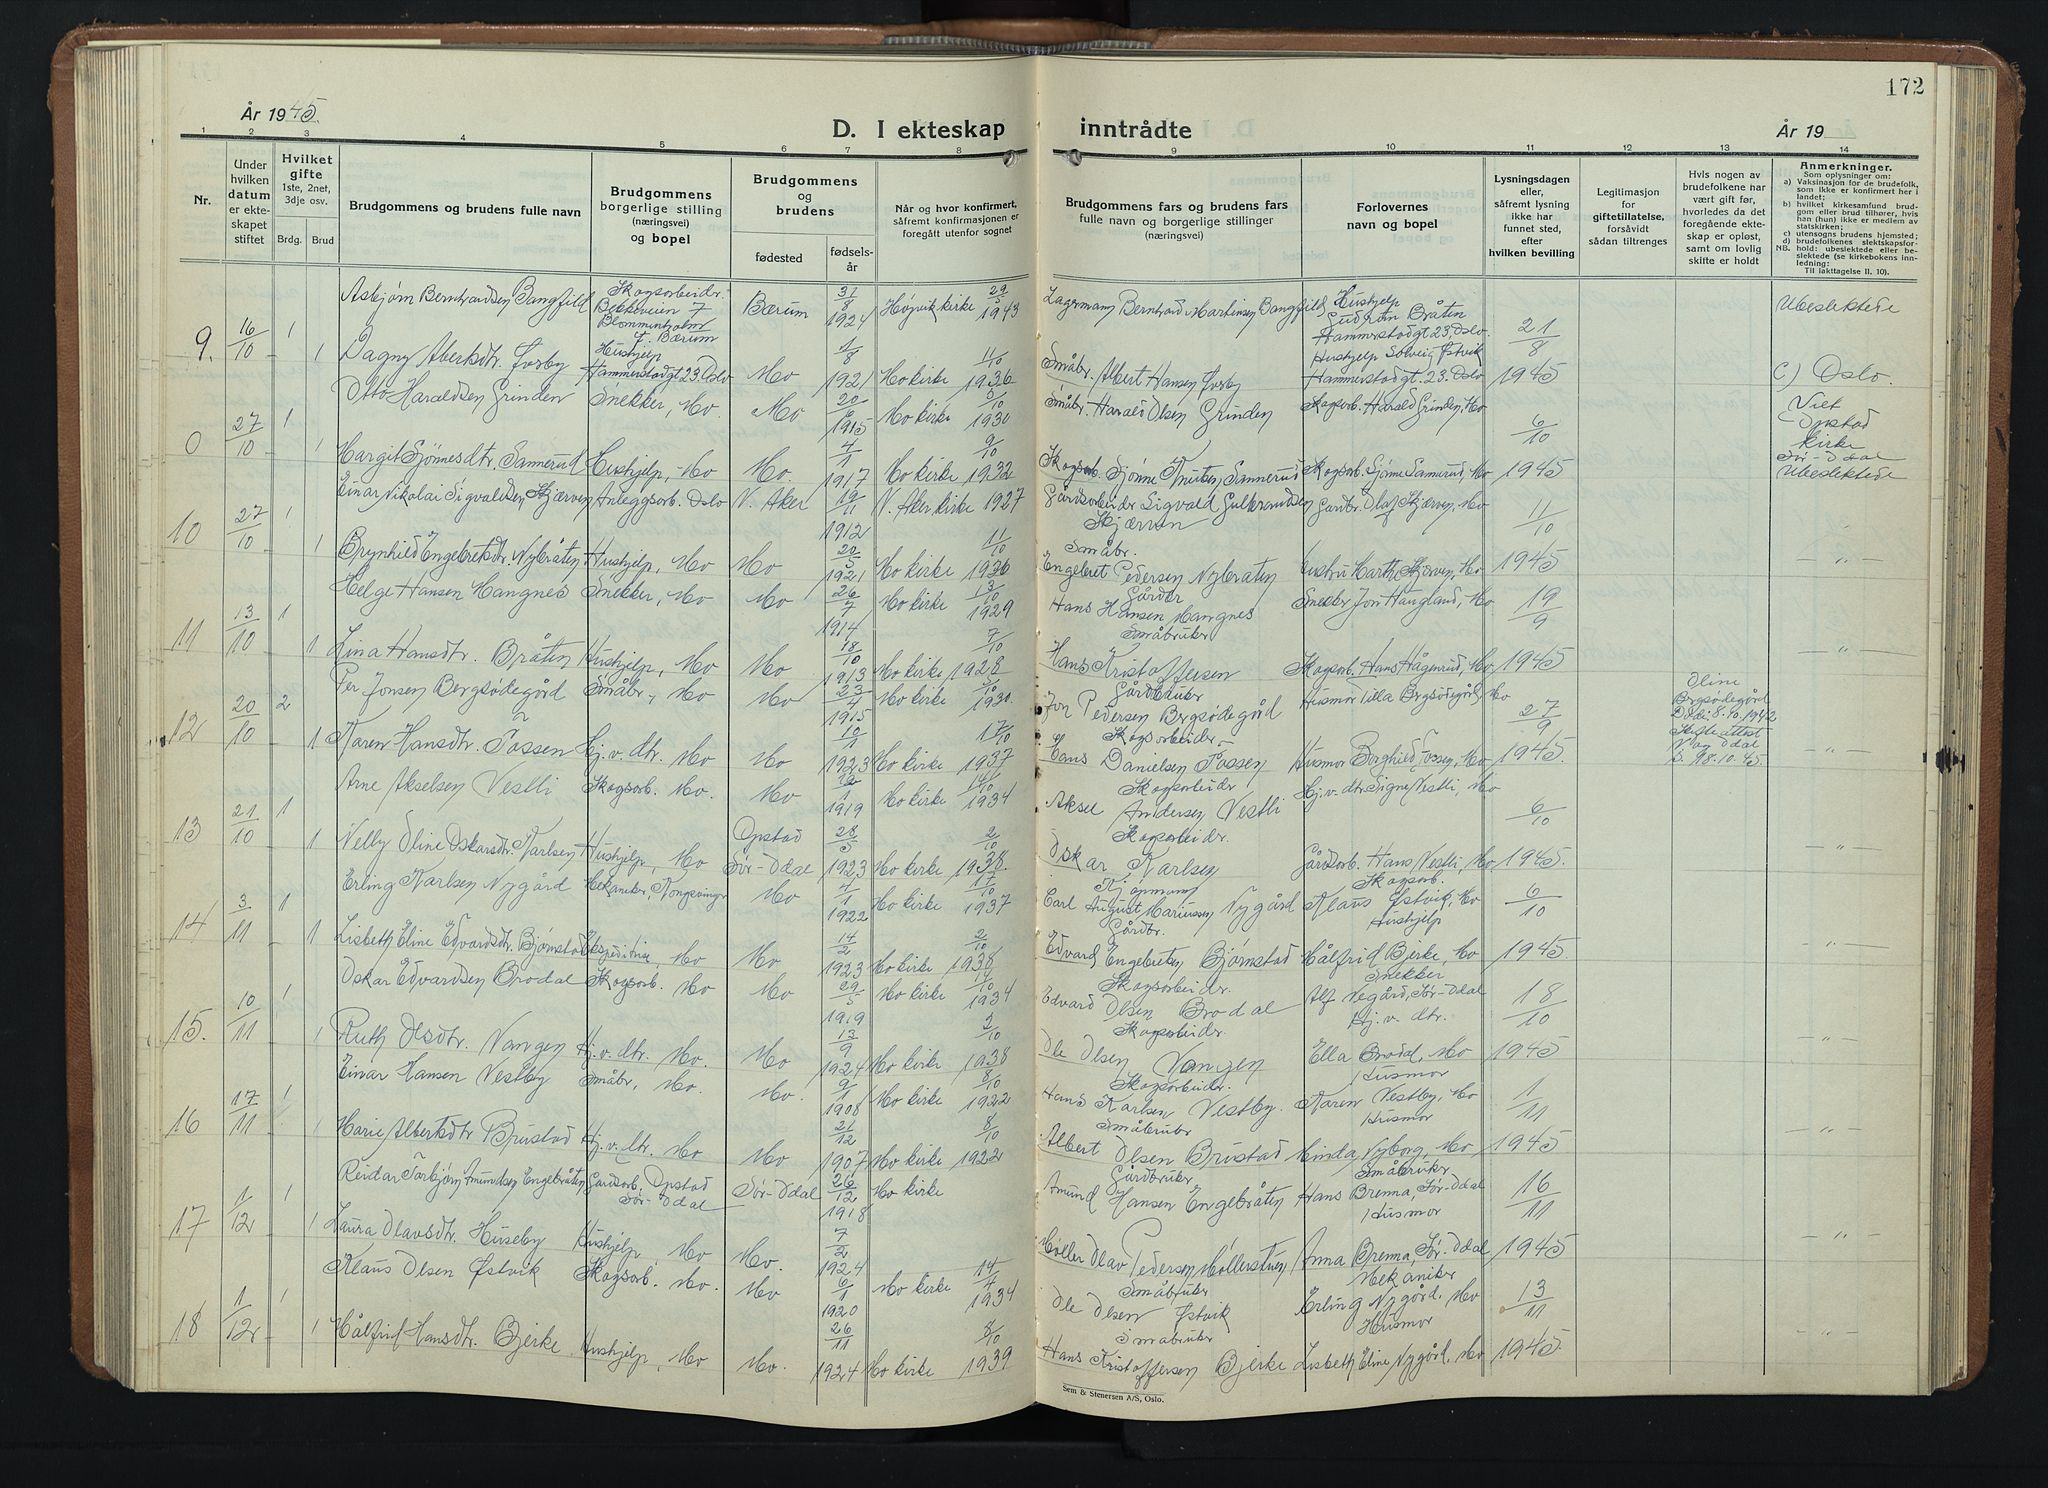 172
År 1945.
D. I ekteskap inntrådte
År 19
1 2 3 4 5 6 7 8 9 10 11 12 13 14
Nr.
Under hvilken datum er ekteskapet stiftet
Hvilket gifte 1ste, 2net, 3dje osv.
Brdg. Brud
Brudgommens og brudens fulle navn
Brudgommens borgerlige stilling (næringsvei) og bopel
Brudgommens og brudens
fødested
fødselsår
Når og hvor konfirmert, såfremt konfirmasjonen er foregått utenfor sognet
Brudgommens fars og brudens fars fulle navn og borgerlige stillinger (næringsvei)
Forlovernes navn og bopel
Lysningsdagen eller, såfremt lysning ikke har funnet sted, efter hvilken bevilling
Legitimasjon for giftetillatelse, forsåvidt sådan tiltrenges
Hvis nogen av brudefolkene har vært gift før, hvorledes da det foregående ekteskap er opløst, samt om lovlig skifte er holdt
Anmerkninger.
Som oplysninger om:
a) Vaksinasjon for de brudefolk, som ikke er konfirmert her i landet;
b) hvilket kirkesamfund brudgom eller brud tilhører, hvis han (hun) ikke er medlem av statskirken;
c) utensogns brudens hjemsted;
d) brudefolkenes slektskapsforhold: ubeslektede eller beslektede (se kirkebokens innledning:
NB.
Til iakttagelse II. 10).
9. 16/10 1 Asbjørn Berntsen Bangfild Skogsarbeider Bekkeveien 7 Blommenholm p. Bærum Bærum 31/8 1924 Høvik kirke 29/5 1943 Lagermann Berntsen Martinsen Bangfild Hushjelp Gudrun Bråten Hammerstadgt 23, Oslo 21/8 Ubeslektede
1 Dagny Albertsdtr. Øvsby Hushjelp Hammerstadgt 23. Oslo Mo 1/8 1921 Mo kirke 11/10 1936 Småbr. Albert Hansen Øvsby Hushjelp Solveig Østvik Hammerstadgt. 23. Oslo 1945 c.) Oslo.
0 27/10 1 Otto Haraldsen Grinden Snekker, Mo. Mo 20/6 1915 Mo kirke 5/10 1930 Småbr. Harald Olsen Grinden Skogsarb. Harald Grinden, Mo 6/10 Viet Opstad kirke Sør-Odal
1 Margit Sjønnesdtr. Sannerud Hushjelp, Mo Mo. 4/1 1917 Mo kirke 9/10 1932 Skogsarb. Sjønne Knutsen Sannerud Skogsarb. Sjønne Sannerud, Mo 1945 Ubeslektede
10 27/10 1 Einar Nikolai Sigvaldsen Skjærven Anleggsarb. Oslo V. Aker 19/11 1912 V. Aker kirke 1927 Gårdsarbeider Sigvald Gulbrandsen Skjærven Gardbr. Olaf Skjærven, Mo 11/10
1 Brynhild Engebretsdtr. Nybråten Hushjelp, Mo Mo 20/5 1921 Mo kirke 11/10 1936 Småbr. Engebret Pedersen Nybråten Hustru Marth. Skjærven, Mo 1945 - " -
11 13/10 1 Helge Hansen Mangnes Snekker, Mo Mo 26/7 1914 Mo kirke 13/10 1929 Gårdbr Hans Hansen Mangnes Snekker Jon Haugland, Mo 19/9
1 Lina Hansdtr. Bråten Hushjelp, Mo Mo 18/10 1913 Mo kirke 7/10 1928 Småbruker Hans Kristoffersen Skogsarb. Hans Hågenrud, Mo 1945 - " -
12 20/10 2 Per Jonsen Bergsødegård Småbr., Mo Mo 23/4 1915 Mo kirke 5/10 1930. Gårdbruker Jon Pedersen Bergsødegård Husmor Tilla Bergsødegård, Mo 27/9 Oline Bergsødegård Død: 8.10.1942 Skifteattest
1 Karen Hansdtr. Fossen Hj. v. dtr. Mo Mo 10/1 1923 Mo kirke 17/10 1937 Skogsarbeider. Hans Danielsen Fossen Husmor Borghild Fossen, Mo 1945 - " -
13 21/10 1 Arne Akselsen Vestli Skogsarb. Mo. Mo 1919 Mo kirke 14/10 1934 Skogsarbeider Aksel Andersen Vestli Hj. v. dtr. Signe Vestli, Mo 6/10
1 Nelly Oline Oskarsdtr. Karlsen Hushjelp, Mo Opstad Sør-Odal 28/5 1923 Mo kirke 2/10 1938. Skogsarbeidr. Oskar Karlsen Gårdsarb. Hans Vestli, Mo 1945. - " -
14 3/11 1 Erling Karlsen Nygård Mekaniker, Kongsvinger Mo 4/1 1922 Mo kirke 17/10 1937 Kjøpmann Carl August Mariussen Nygård Skogsarb. Klaus Østvik, Mo 6/10
1 Lisbeth Eline Edvardsdtr. Bjørnstad Ekspeditrise, Mo Mo 14/2 1923 Mo kirke 2/10 1938 Gårdbr. Edvard Engebretsen Bjørnstad Hushjelp Hålfrid Bjerke, Mo 1945. - " -
15. 10/11 1 Oskar Edvardsen Brodal Skogsarb. Mo Mo 29/5 1919 Mo kirke 14/10 1934 Skogsarbeider. Edvard Olsen Brodal Snekker Alf Negård, Sør-Odal 18/10
1 Ruth Olsdtr. Vangen Hj. v. dtr. Mo. Mo 13/9 1924 Mo kirke 2/10 1938 Skogsarbeider Ole Olsen Vangen Hj. v. dtr. Ella Brodal, Mo 1945 - " -
16 17/11 1 Einar Hansen Vestby Småbr, Mo. Mo. 9/1 1908 Mo kirke 8/10 1922 Skogsarbeider. Hans Karlsen Vestby. Husmor Karen Vestby, Mo 1/11
1 Marie Albertsdtr Brustad Hj. v. dtr. Mo Mo 21/12 1907 Mo kirke 8/10 1922 Småbruker Albert Olsen Brustad Husmor Minda Nyborg, Mo 1945 - " -
17 1/12 1 Reidar Torbjørn Amundsen Engebråten Gårdsarb. Opstad Sør-Odal Sør-Odal 26/12 1918 Mo kirke Gårdbruker Amund Hansen Engebråten Småbruker Hans Brenna, Sør-Odal 16/11
1 Laura Olavsdtr. Huseby Hushjelp, Mo Mo. 7/2 1924 Møller Olav Pedersen Møllerstuen Husmor Anna Brenna, Sør-Odal 1945 - " -
18 1/12 1 Klaus Olsen Østvik Skogsarb. Mo. Mo 6/1 1920 Mo kirke 14/4 1934 Småbruker Ole Olsen Østvik Mekaniker Erling Nygård. Mo 13/11
1 Hålfrid Hansdtr. Bjerke Hushjelp, Mo Mo. 26/11 1924 Mo kirke 8/10 1939 Småbruker Hans Kristoffersen Bjerke Husmor Lisbeth Eline Nygård, Mo 1945. - " -
Sem & Stenersen A/S, Oslo.